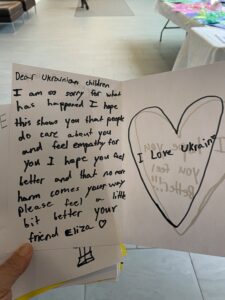 Dear Ukrainian children
I am so sorry for what
has happened I hope
this shows you that people
do care about you
and feel empathy for
you I hope you feel
better and that no more
harm comes your way
please feel a little
bit better your
friend Eliza ♡
I Love Ukraine
I hope you
you feel
Better!!!